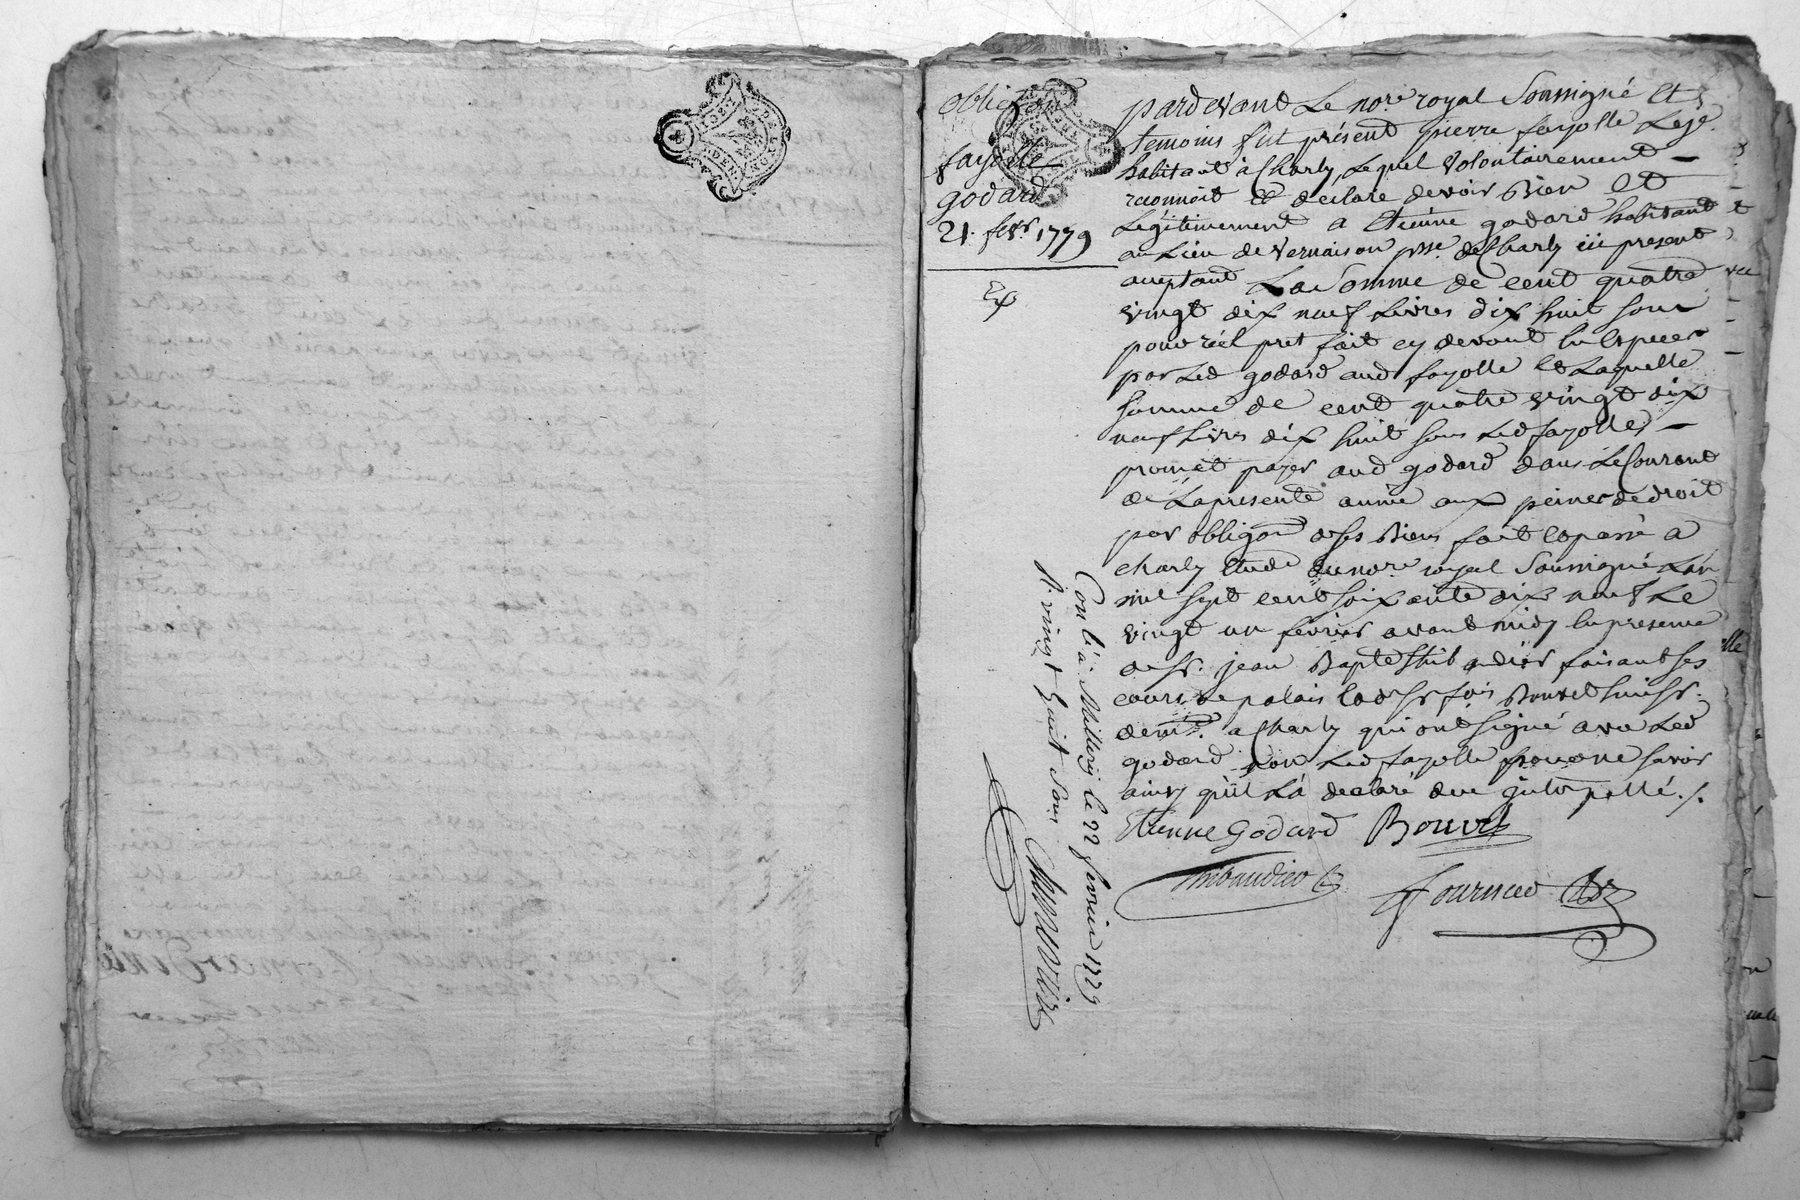 obligaõn
fayolle
godard
21. fevr. 1779
Exp
pardevant Le nore royal Soussigné Et
temoins fut présent pierre fayolle Lege.
habitant à Charly, Lequel Volontairement
reconnoit Et declare devoir Bien Et
Legitimement a Etienne godard habitant
au Lieu de Vernaison psse. de Charly ici present
acceptant La Somme de cent quatre
vingt dix neuf Livres dix huit sous
pour réel pret fait cy devant En Especes
par Led godard aud fayolle Et Laquelle
somme de cent quatre vingt dix
neuf Livres dix huit sous Led fayolle
promet payer aud godard dans Le Courant
de La presente année aux peines de droit
par obligaõn de ses Biens fait Et passé a
charly Etude du nore. royal Soussigné L'an
mil sept cent soixante dix neuf Le
vingt un fevrier avant midy En presence
de sr. jean Bapte Thibaudier faisant ses
cours de palais Et de sr fois Bouvet huissr.
demt. a Charly qui ont signé avec Led
godard non Led fayolle pour ne savoir
ainsy qu'il L'a declaré de ce interpellé ./.
Etienne Godard Bouvet
Thibaudier
fournier
Con lé a Millery le 22 fevrier 1779
R. vingt huit sous